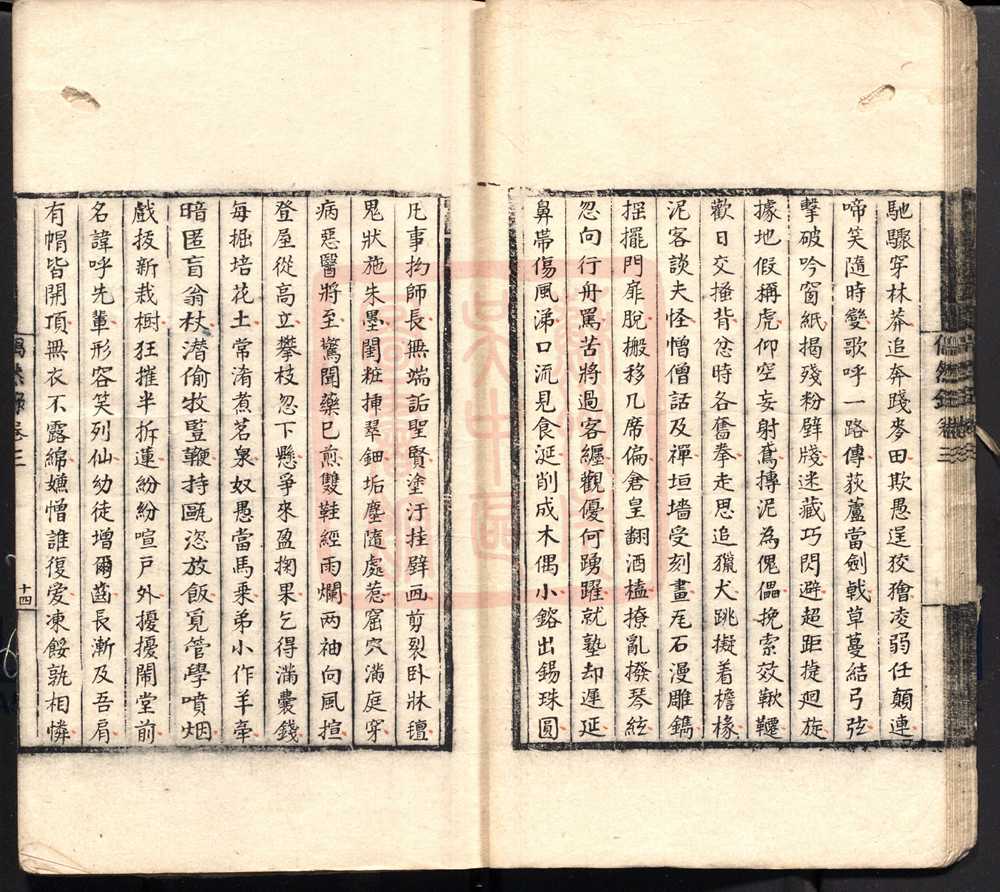 馳驟穿林莽追奔踐麥田欺愚逞狡獪凌弱任顛連
啼笑隨時變歌呼一路傳荻蘆當劍戟草蔓結弓弦
擊破吟窗紙揭殘粉壁牋迷藏巧閃避超距捷迴旋
據地假稱虎仰空妄射鳶摶泥為傀儡挽索效鞦韆
歡日交搔背忿時各奮拳走思追獵犬跳擬着檐椽
泥客談夫怪憎僧話及禪垣墻受刻畫瓦石漫雕鐫
搖擺門扉脫搬移几席偏倉皇翻酒榼撩亂撥琴絃
忽向行舟罵苦將過客纏觀優何踴躍就塾却遲延
鼻帶傷風涕口流見食涎削成木偶小鎔出錫珠圓
凡事拘師長無端詬聖賢塗汙挂壁画剪裂臥牀氊
鬼狀施朱墨閨粧揷翠鈿垢塵隨處惹窟穴滿庭穿
病惡醫將至驚聞藥已煎雙鞋經雨爛兩袖向風揎
登屋從高立攀枝忽下懸爭來盈掬果乞得滿囊錢
每掘培花土常淆煮茗泉奴愚當馬乘弟小作羊牽
暗匿盲翁杖潛偷牧豎鞭持甌恣放飯覓管學噴烟
戲拔新栽樹狂摧半拆蓮紛紛喧戶外擾擾鬧堂前
名諱呼先輩形容笑列仙幼徒增爾齒長漸及吾肩
有帽皆開頂無衣不露綿嬚憎誰復愛凍餒孰相憐
偶然錄卷三
十四